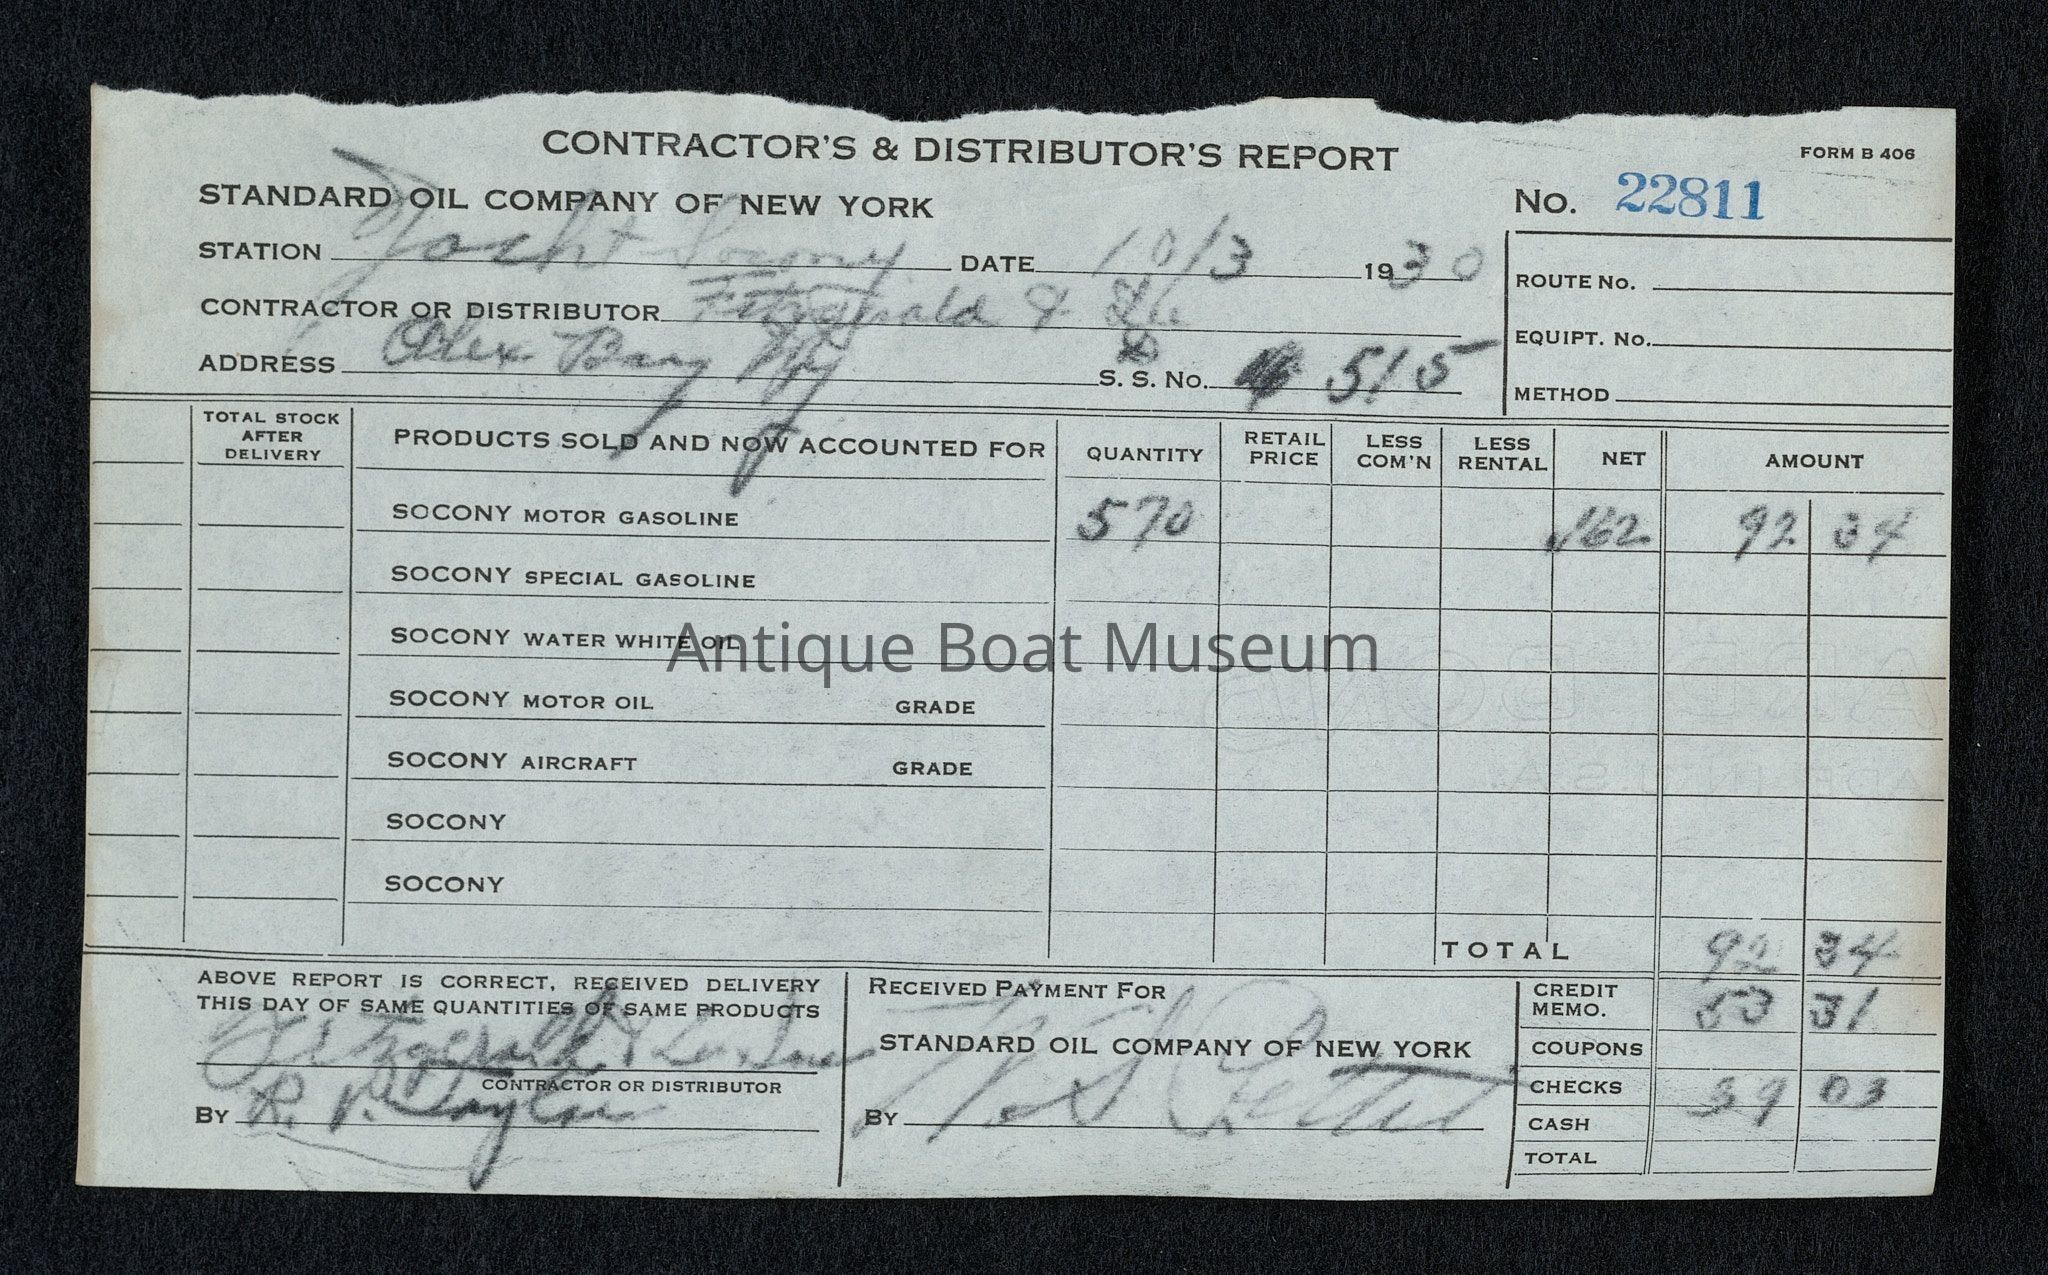 CONTRACTOR'S & DISTRIBUTOR'S REPORT
FORM B 406
STANDARD OIL COMPANY OF NEW YORK
No. 22811
STATION Yacht Socony DATE 10/3 1930
ROUTE No.
CONTRACTOR OR DISTRIBUTOR Fitzgerald &
EQUIPT. No.
ADDRESS Alex Bay NY S. S. No. 515
METHOD
TOTAL STOCK AFTER DELIVERY PRODUCTS SOLD AND NOW ACCOUNTED FOR QUANTITY RETAIL PRICE LESS COM'N LESS RENTAL NET AMOUNT
SOCONY MOTOR GASOLINE 570 .162 92 34
SOCONY SPECIAL GASOLINE
SOCONY WATER WHITE OIL
Antique Boat Museum
SOCONY MOTOR OIL GRADE
SOCONY AIRCRAFT GRADE
SOCONY
SOCONY
TOTAL 92 34
ABOVE REPORT IS CORRECT, RECEIVED DELIVERY
THIS DAY OF SAME QUANTITIES OF SAME PRODUCTS
Fitzgerald &
CONTRACTOR OR DISTRIBUTOR
BY R. P. Taylor
RECEIVED PAYMENT FOR
STANDARD OIL COMPANY OF NEW YORK
BY
CREDIT MEMO. 53 31
COUPONS
CHECKS 39 03
CASH
TOTAL